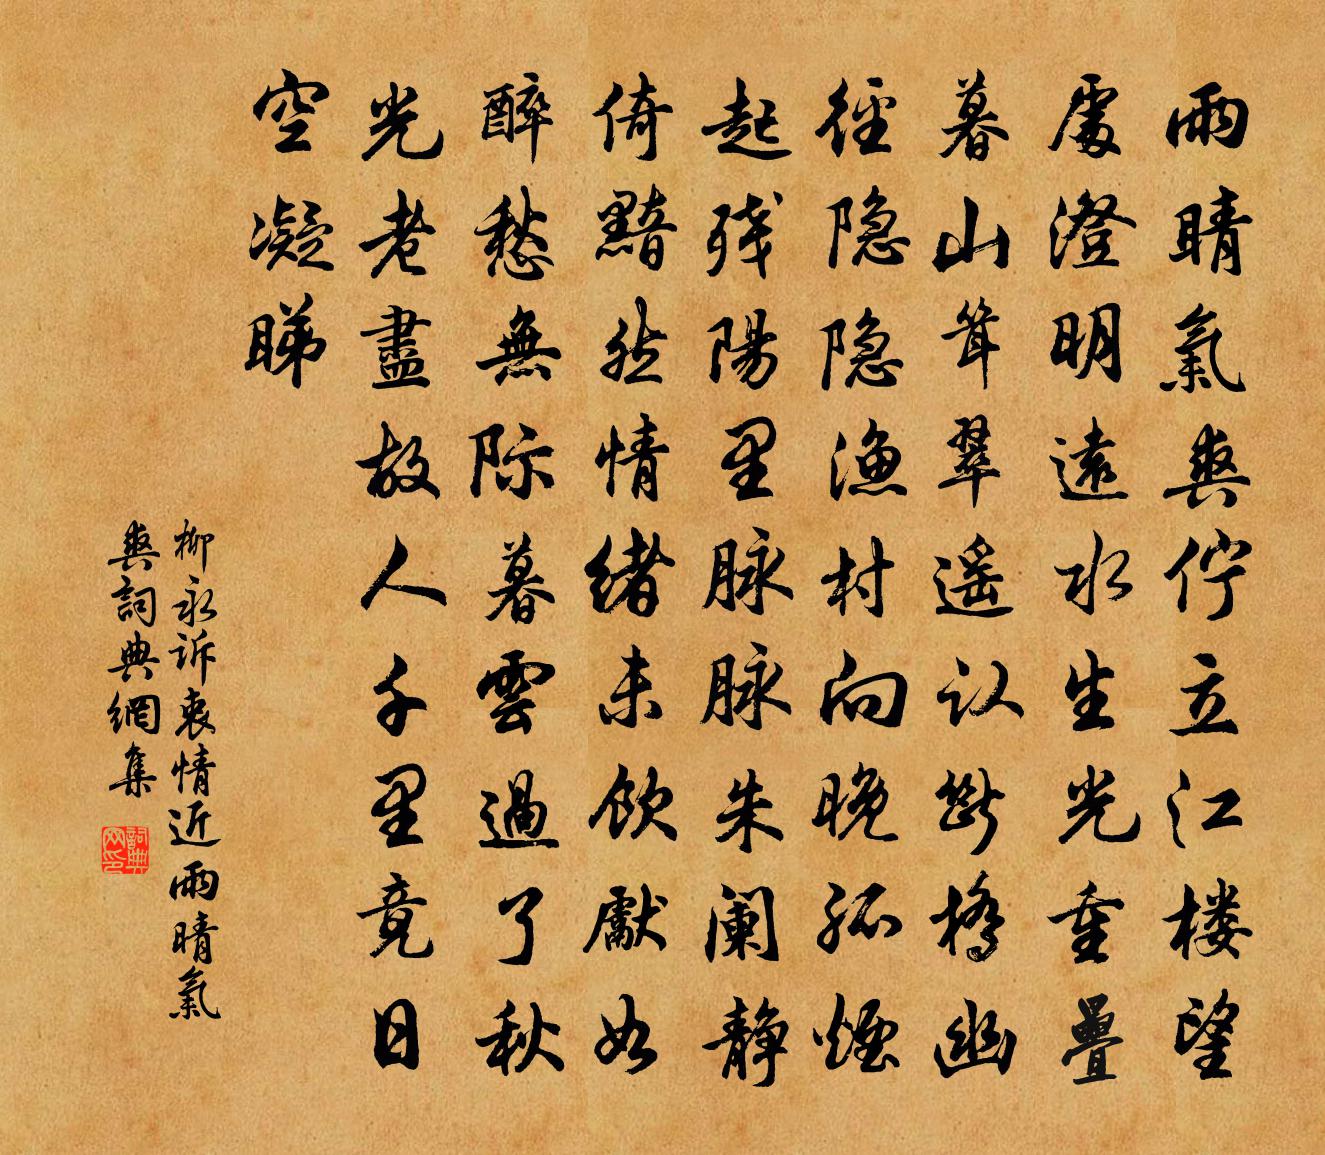 雨晴氣爽佇立江楼望
處澄明遠水生光重疊
暮山聳翠遥认斷橋幽
徑隐隐漁村向晚孤煙
起残陽里脉脉朱阑静
倚黯然情緒未飲獻如
醉愁無际暮雲過了秋
光老盡故人千里竟日
空凝睇
柳永诉衷情近雨晴氣
爽詞典網集
詞典
网印